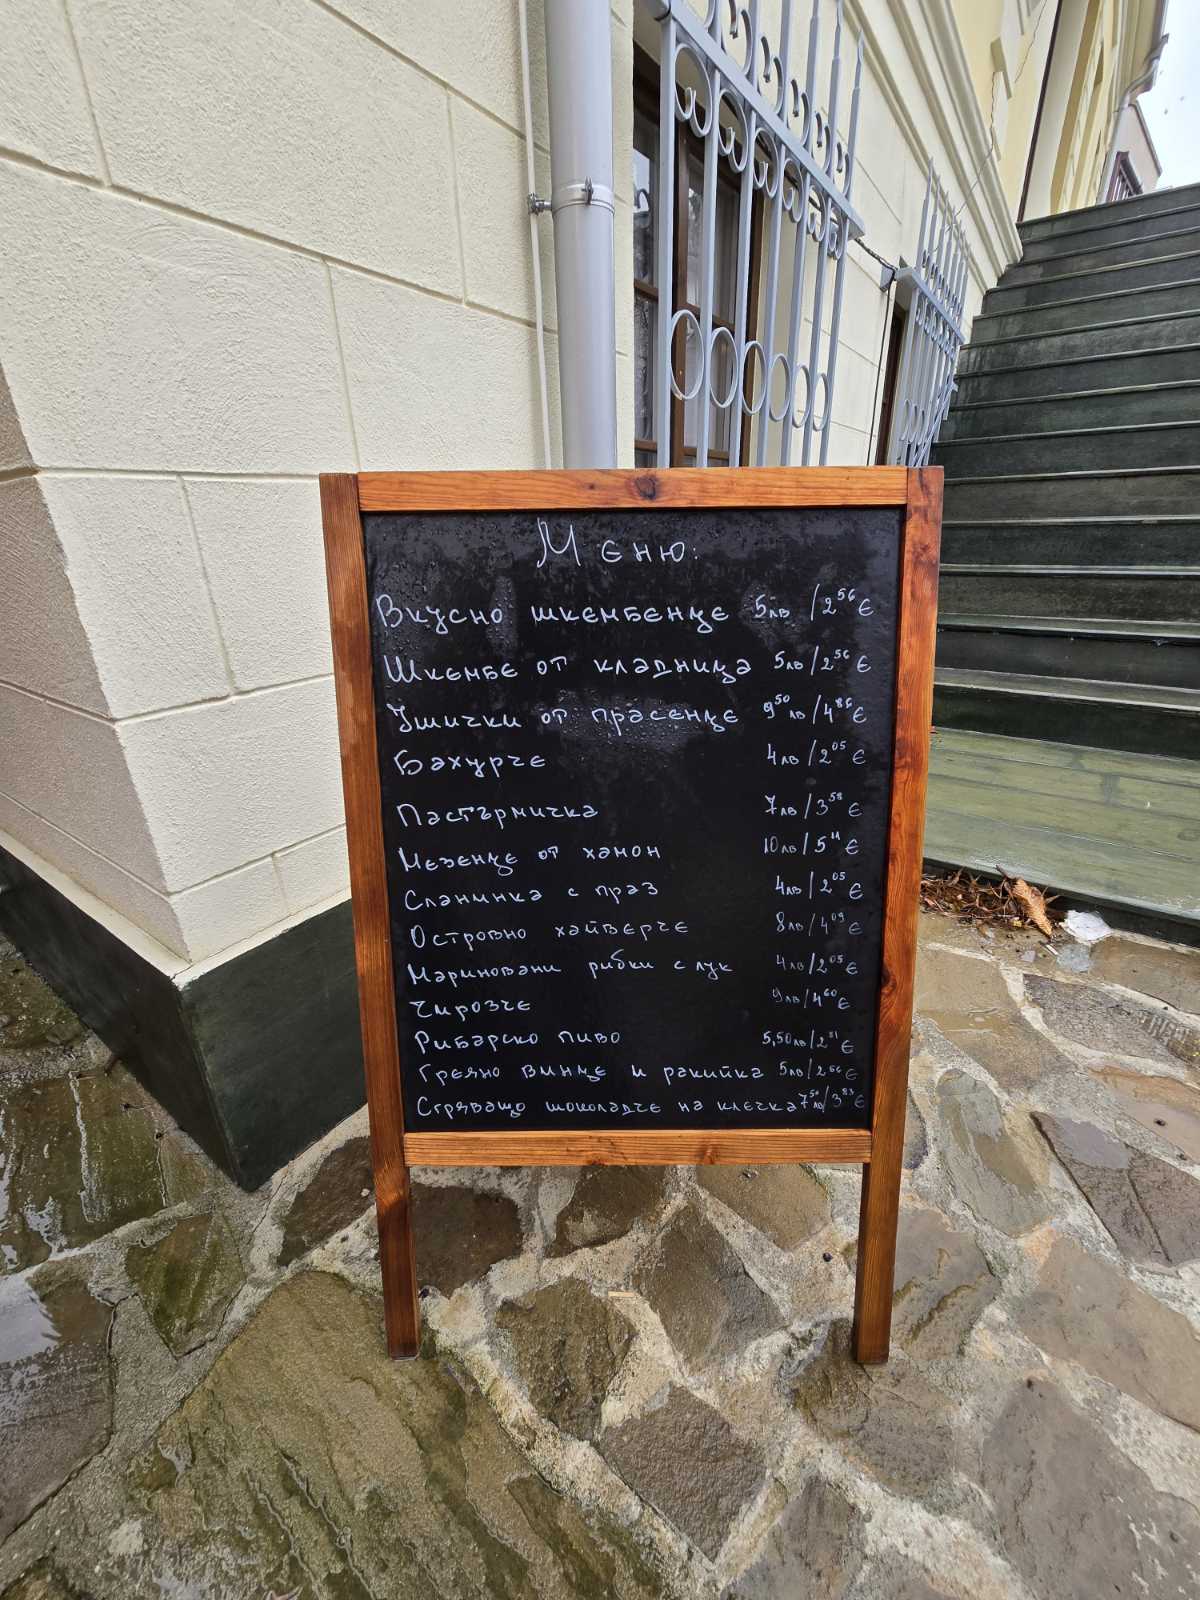 Меню:
Вкусно шкембенце 5лв/2⁵⁶ €
Шкембе от кладница 5лв/2⁵⁶ €
Ушички от прасенце 9⁵⁰ лв/4⁸⁶ €
Бахурче 4лв/2⁰⁵ €
Пастърмичка 7лв/3⁵⁸ €
Мезенце от хамон 10лв/5¹¹ €
Сланинка с праз 4лв/2⁰⁵ €
Островно хайверче 8лв/4⁰⁹ €
Мариновани рибки с лук 4лв/2⁰⁵ €
Чирозче 9лв/4⁶⁰ €
Рибарско пиво 5,50лв/2⁸¹ €
Греяно винце и ракийка 5лв/2⁵⁶ €
Сгряващо шоколадче на клечка 7⁵⁰ лв/3⁸³ €